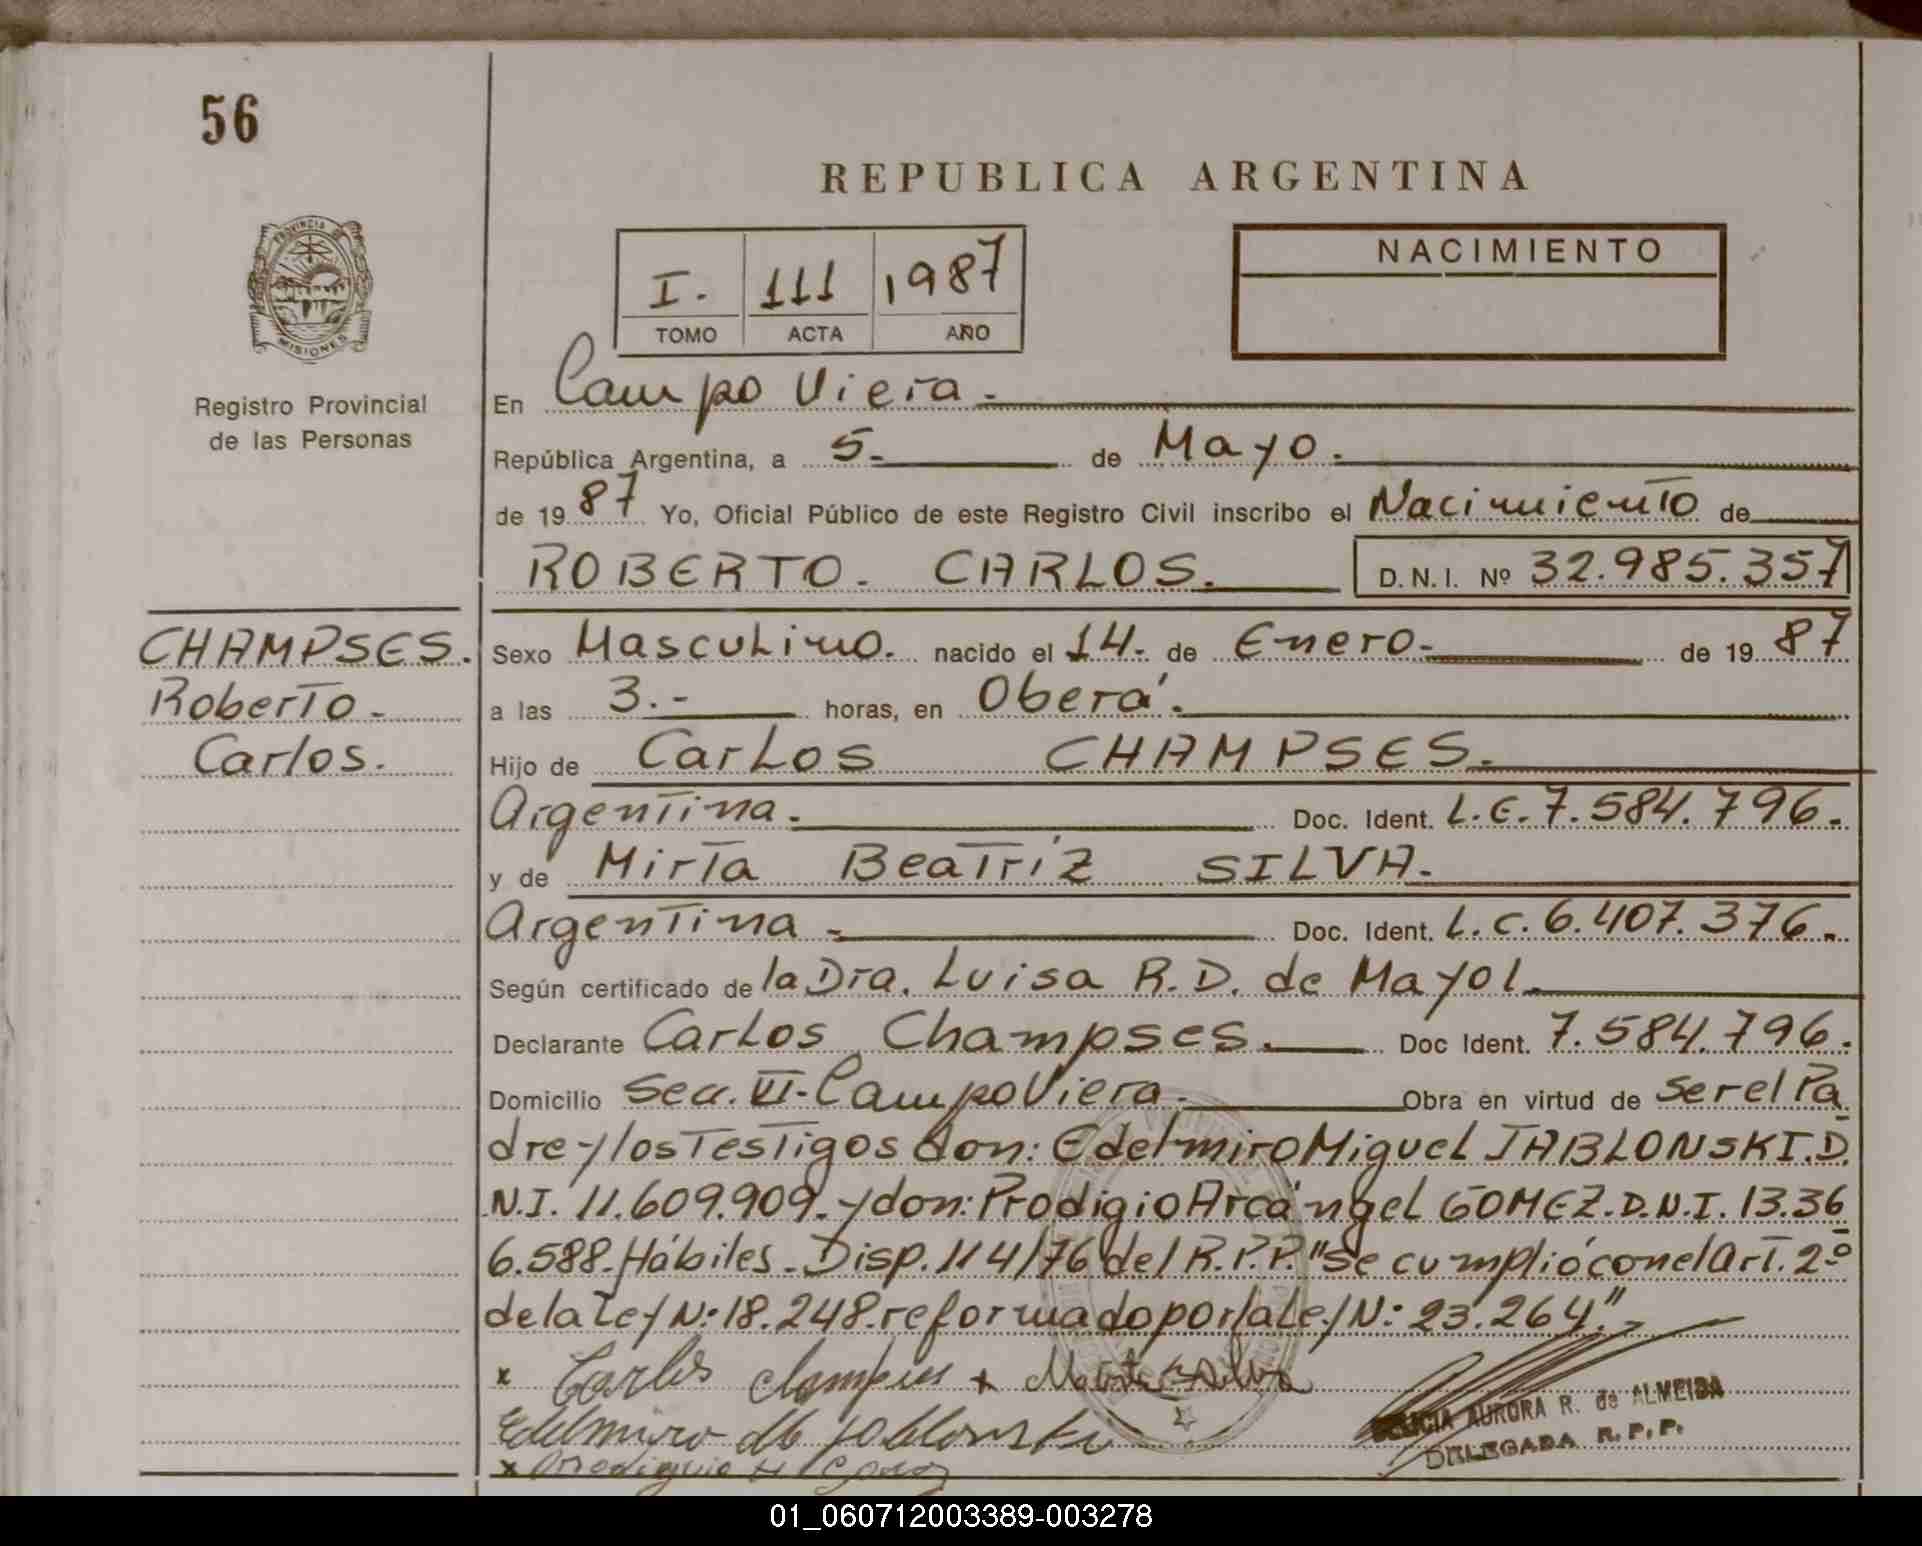 56
REPUBLICA ARGENTINA
PROVINCIA DE
MISIONES
Registro Provincial
de las Personas
I. 111 1987
TOMO ACTA AÑO
NACIMIENTO
En Campo Viera.
República Argentina, a 5. de Mayo.
de 19 87 Yo, Oficial Público de este Registro Civil inscribo el Nacimiento de
ROBERTO. CARLOS. D.N.I. Nº 32.985.357
CHAMPSES.
Roberto.
Carlos.
Sexo Masculino. nacido el 14. de Enero. de 19 87
a las 3.- horas, en Oberá.
Hijo de Carlos CHAMPSES.
Argentina. Doc. Ident. L.E. 7.584.796.
y de Mirta Beatríz SILVA.
Argentina. Doc. Ident. L.C. 6.407.376.
Según certificado de la Dra. Luisa R.D. de Mayol.
Declarante Carlos Champses. Doc Ident. 7.584.796.
Domicilio Secc. VI- Campo Viera. Obra en virtud de ser el Pa
dre y los testigos don: Edelmiro Miguel JABLONSKI. D.
N.I. 11.609.909. y don: Prodigio Arcángel GOMEZ. D.N.I. 13.36
6.588. Hábiles. Disp. 114/76 del R.P.P. "Se cumplió con el Art. 2º
de la Ley N: 18.248. reformado por la Ley N: 23.264."
x Carlos Champses x Mirta B Silva
Edelmiro M Jablonski
AURORA R. de ALMEIDA
DELEGADA R.P.P.
01_060712003389-003278